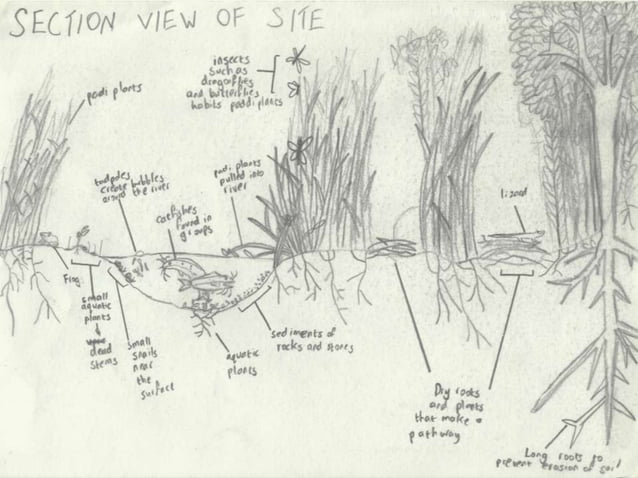 SECTION VIEW OF SITE
padi plants
insects
such as
dragonflies
and butterflies
habits paddi plants
tadpoles
create bubbles
around the river
catfishes
found in
groups
padi plants
pulled into
river
lizard
Frog
small
aquatic
plants
dead
stems
small
snails
near
the
surface
aquatic
plants
sediments of
rocks and stones
Dry roots
and plants
that make a
pathway
Long roots to
prevent erosion of soil